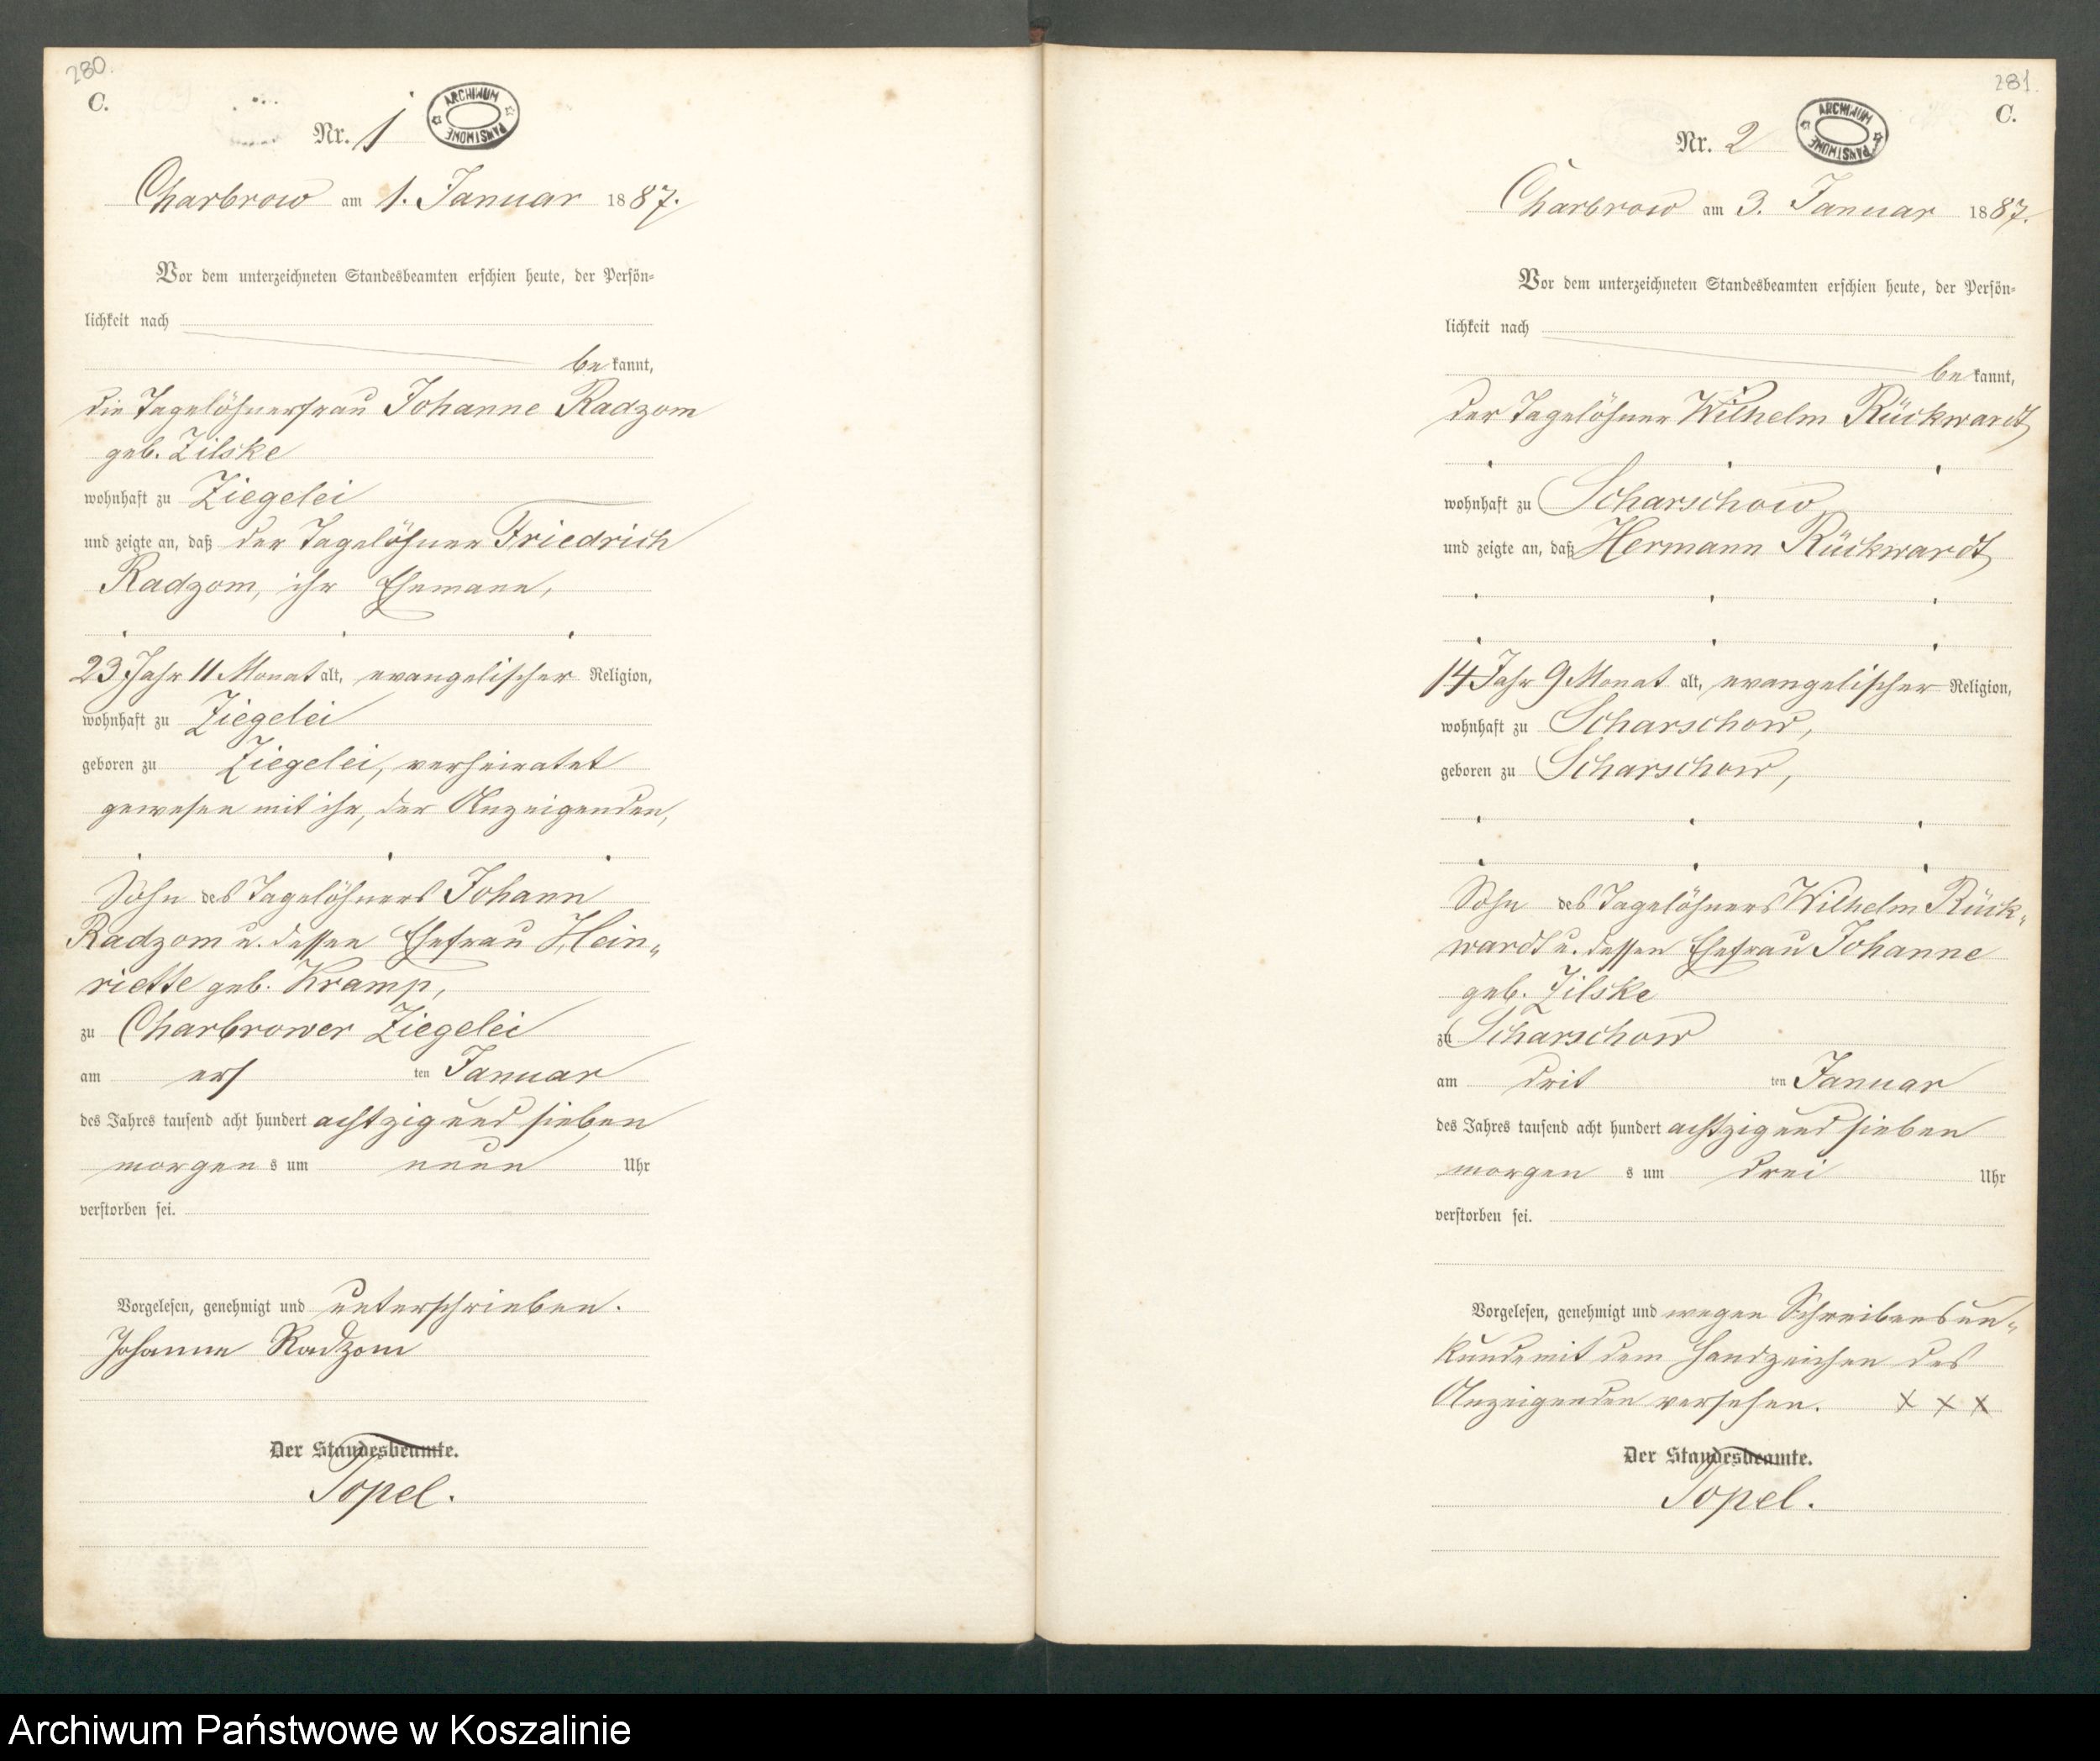 280.
C.
Nr. 1
ARCHIWUM PAŃSTWOWE
Charbrow am 1. Januar 1887.
Vor dem unterzeichneten Standesbeamten erschien heute, der Persön-
lichkeit nach
bekannt,
die Tagelöhnerfrau Johanne Radzom
geb. Zilske
wohnhaft zu Ziegelei
und zeigte an, daß der Tagelöhner Friedrich
Radzom, ihr Ehemann,
23 Jahr 11 Monat alt, evangelischer Religion,
wohnhaft zu Ziegelei
geboren zu Ziegelei, verheiratet
gewesen mit ihr, der Anzeigenden,
Sohn des Tagelöhners Johann
Radzom u. dessen Ehefrau Hein-
riette geb. Kramp,
zu Charbrower Ziegelei
am ersten Januar
des Jahres tausend acht hundert achtzig und sieben
morgens um neun Uhr
verstorben sei.
Vorgelesen, genehmigt und unterschrieben.
Johanne Radzom
Der Standesbeamte.
Topel.
281
C.
Nr. 2
ARCHIWUM PAŃSTWOWE
Charbrow am 3. Januar 1887.
Vor dem unterzeichneten Standesbeamten erschien heute, der Persön-
lichkeit nach
bekannt,
der Tagelöhner Wilhelm Rückwardt
wohnhaft zu Scharschow
und zeigte an, daß Hermann Rückwardt
14 Jahr 9 Monat alt, evangelischer Religion,
wohnhaft zu Scharschow,
geboren zu Scharschow,
Sohn des Tagelöhners Wilhelm Rück-
wardt u. dessen Ehefrau Johanne
geb. Zilske
zu Scharschow
am dritten Januar
des Jahres tausend acht hundert achtzig und sieben
morgens um drei Uhr
verstorben sei.
Vorgelesen, genehmigt und wegen Schreibensun-
kunde mit dem Handzeichen des
Anzeigenden versehen. x x x
Der Standesbeamte.
Topel.
Archiwum Państwowe w Koszalinie